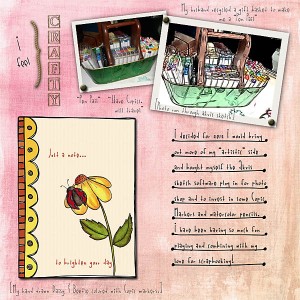 My husband recycled a gift basket to make
me a "fun tail"
i feel
CRAFTY
"Fun tail" - Have Copics,
will travel
(Photo run through Akvis Sketch)
I decided for 2008 I would bring
out more of my "artistic" side
and bought myself the Akvis
sketch software plug in for photo
shop and to invest in some Copic
Markers and watercolor pencils.
I have been having so much fun
playing and combining with my
love for scrapbooking!
Just a note...
to brighten your day
(My hand drawn Daisy & Beetle colored with Copic markers)